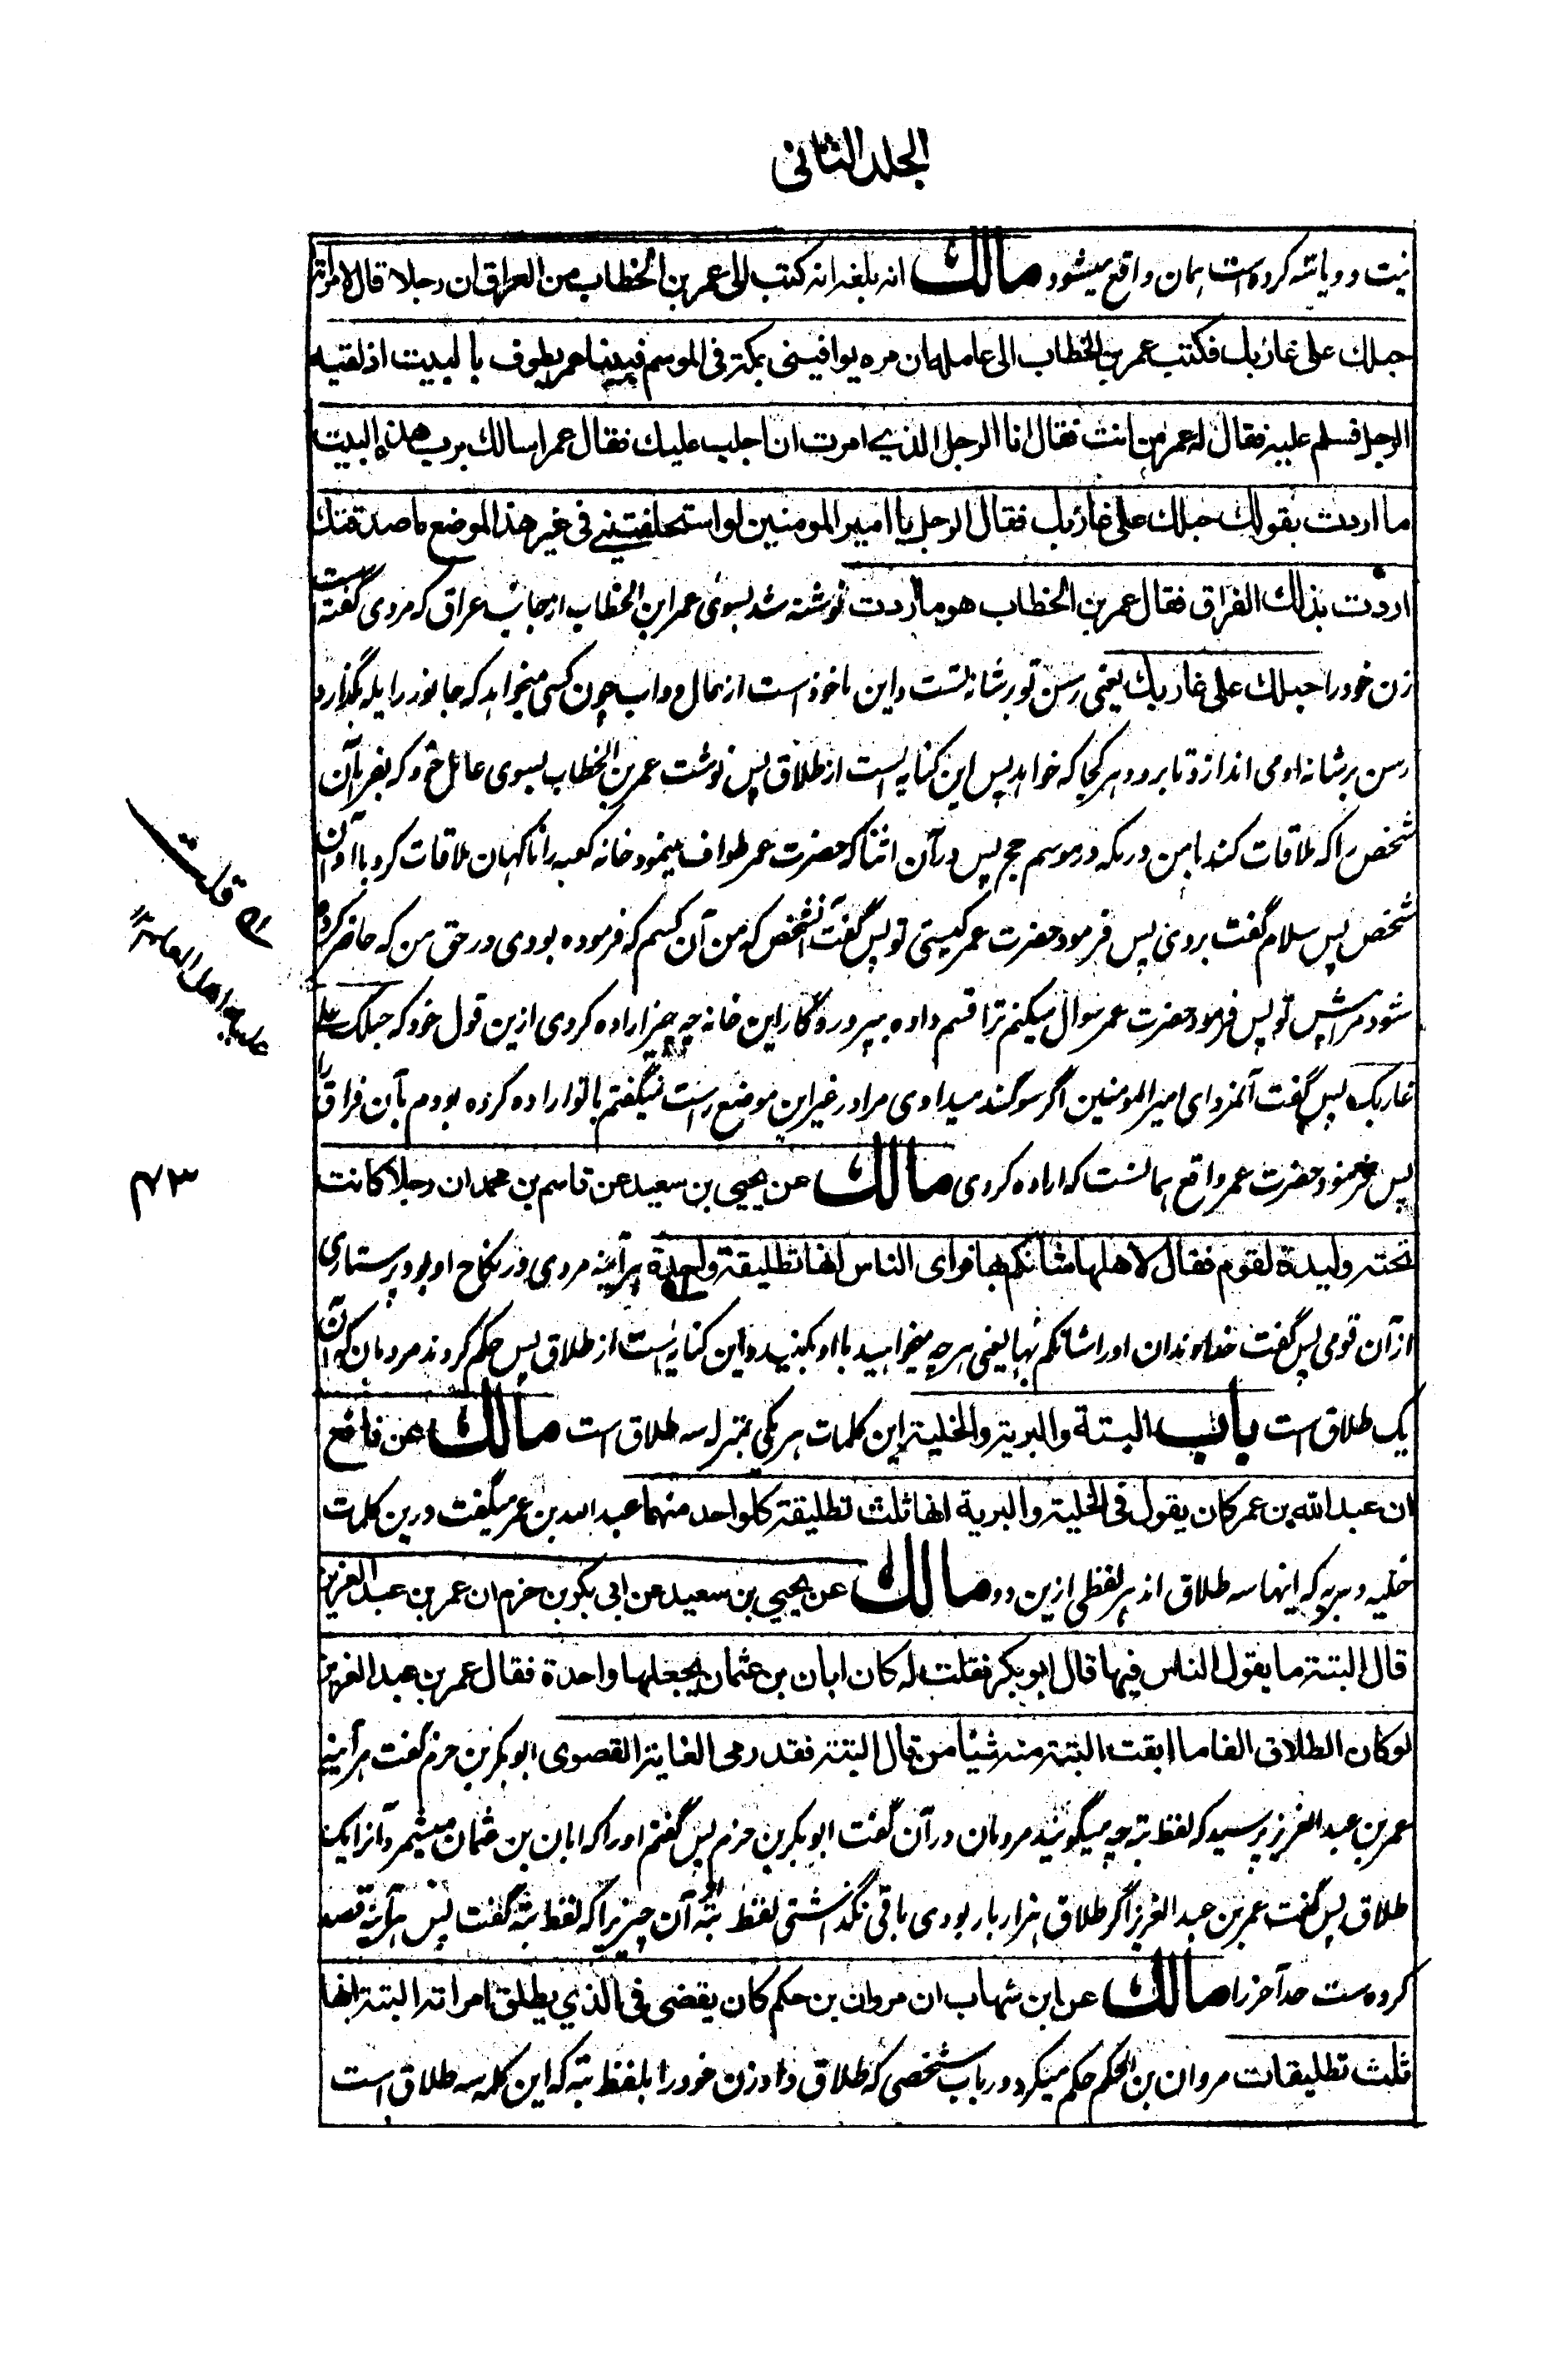 الجلد الثانی
نیت دو یا سه کرده است همان واقع میشود مالك انه بلغه انه کتب الی عمر بن الخطاب من العراق ان رجلا قال لامرأته
حبلك علی غاربك فکتب عمر بن الخطاب الی عامله ان مره یوافینی بمکة فی الموسم فبینما عمر یطوف بالبیت اذ لقیه
الرجل فسلم علیه فقال له عمر من انت فقال انا الرجل الذی امرت ان اجلب علیك فقال عمر اسالك برب هذه البیت
ما اردت بقولك حبلك علی غاربك فقال الرجل یا امیر المومنین لو استحلفتنی فی غیر هذا الموضع ما صدقتك
اردت بذلك الفراق فقال عمر بن الخطاب هو ما اردت نوشته شد بسوی عمر ابن الخطاب از جانب عراق که مردی گفته است
زن خود را حبلك علی غاربك یعنی رسن تو بر شانه تست و این ماخوذ است از حال دواب چون کسی میخواهد که جانور را یله بگذارد
رسن بر شانه او می اندازد تا برود هر کجا که خواهد پس این کنایه است از طلاق پس نوشت عمر بن الخطاب بسوی عامل خود که بفرما آن
شخص را که ملاقات کند با من در مکه در موسم حج پس در آن اثنا که حضرت عمر طواف مینمود خانه کعبه را ناگهان ملاقات کرد با او آن
شخص پس سلام گفت بر وی پس فرمود حضرت عمر کیستی تو پس گفت آنشخص که من آن کسم که فرموده بودی در حق من که حاضر کرده
شود پیش تو پس فرمود حضرت عمر سوال میکنم ترا قسم داده بپروردگار این خانه چه چیز اراده کردی ازین قول خود که حبلك علی
غاربك پس گفت آنمرد ای امیر المومنین اگر سوگند میدادی مرا در غیر این موضع راست نمیگفتم با تو اراده کرده بودم بآن فراق را
پس فرمود حضرت عمر واقع همانست که اراده کردی مالك عن یحیی بن سعید عن قاسم بن محمد ان رجلا کانت
تحته ولیدة لقوم فقال لاهلها شانکم بها فرای الناس انها تطلیقة واحدة هر آئینه مردی در نکاح او بود پرستاری
از آن قومی پس گفت خداوندان او را شانکم بها یعنی هر چه میخواهید با او بکنید و این کنایه است از طلاق پس حکم کردند مردمان که آن
یک طلاق است باب البتة والبریة والخلیة این کلمات هر یکی بمنزله سه طلاق است مالك عن نافع
ان عبد الله بن عمر کان یقول فی الخلیة والبریة انها ثلث تطلیقة کل واحد منهما عبد الله بن عمر میگفت درین کلمات
خلیه و بریه که اینها سه طلاق اند هر لفظی ازین دو مالك عن یحیی بن سعید عن ابی بکر بن حزم ان عمر بن عبد العزیز
قال البتة ما یقول الناس فیها قال ابو بکر فقلت له کان ابان بن عثمان یجعلها واحدة فقال عمر بن عبد العزیز
لو کان الطلاق الفا ما ابقت البتة منه شیئا من قال البتة فقد رمی الغایة القصوی ابو بکر بن حزم گفت هر آئینه
عمر بن عبد العزیز پرسید که لفظ بته چه میگویند مردمان در آن گفت ابو بکر بن حزم پس گفتم او را که ابان بن عثمان میشمرد آنرا یک
طلاق پس گفت عمر بن عبد العزیز اگر طلاق هزار بار بودی باقی نگذاشتی لفظ بته از آن چیزیرا که لفظ بته گفت پس هر آئینه قصد
کرده ست حد آخر را مالك عن ابن شهاب ان مروان بن حکم کان یقضی فی الذی یطلق امراته البتة انها
ثلث تطلیقات مروان بن الحکم حکم میکرد در باب شخصی که طلاق داد زن خود را بلفظ بته که این کلمه سه طلاق است
قلت
علیه اهل العلم
۴۳